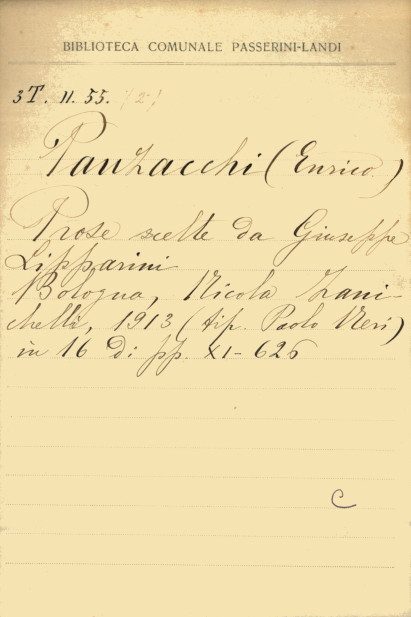 BIBLIOTECA COMUNALE PASSERINI-LANDI
3T. 11. 55. (2)
Panzacchi (Enrico)
Prose scelte da Giuseppe
Lipparini
Bologna, Nicola Zani-
chelli, 1913 (tip. Paolo Neri)
in 16 di pp. XI-626
C